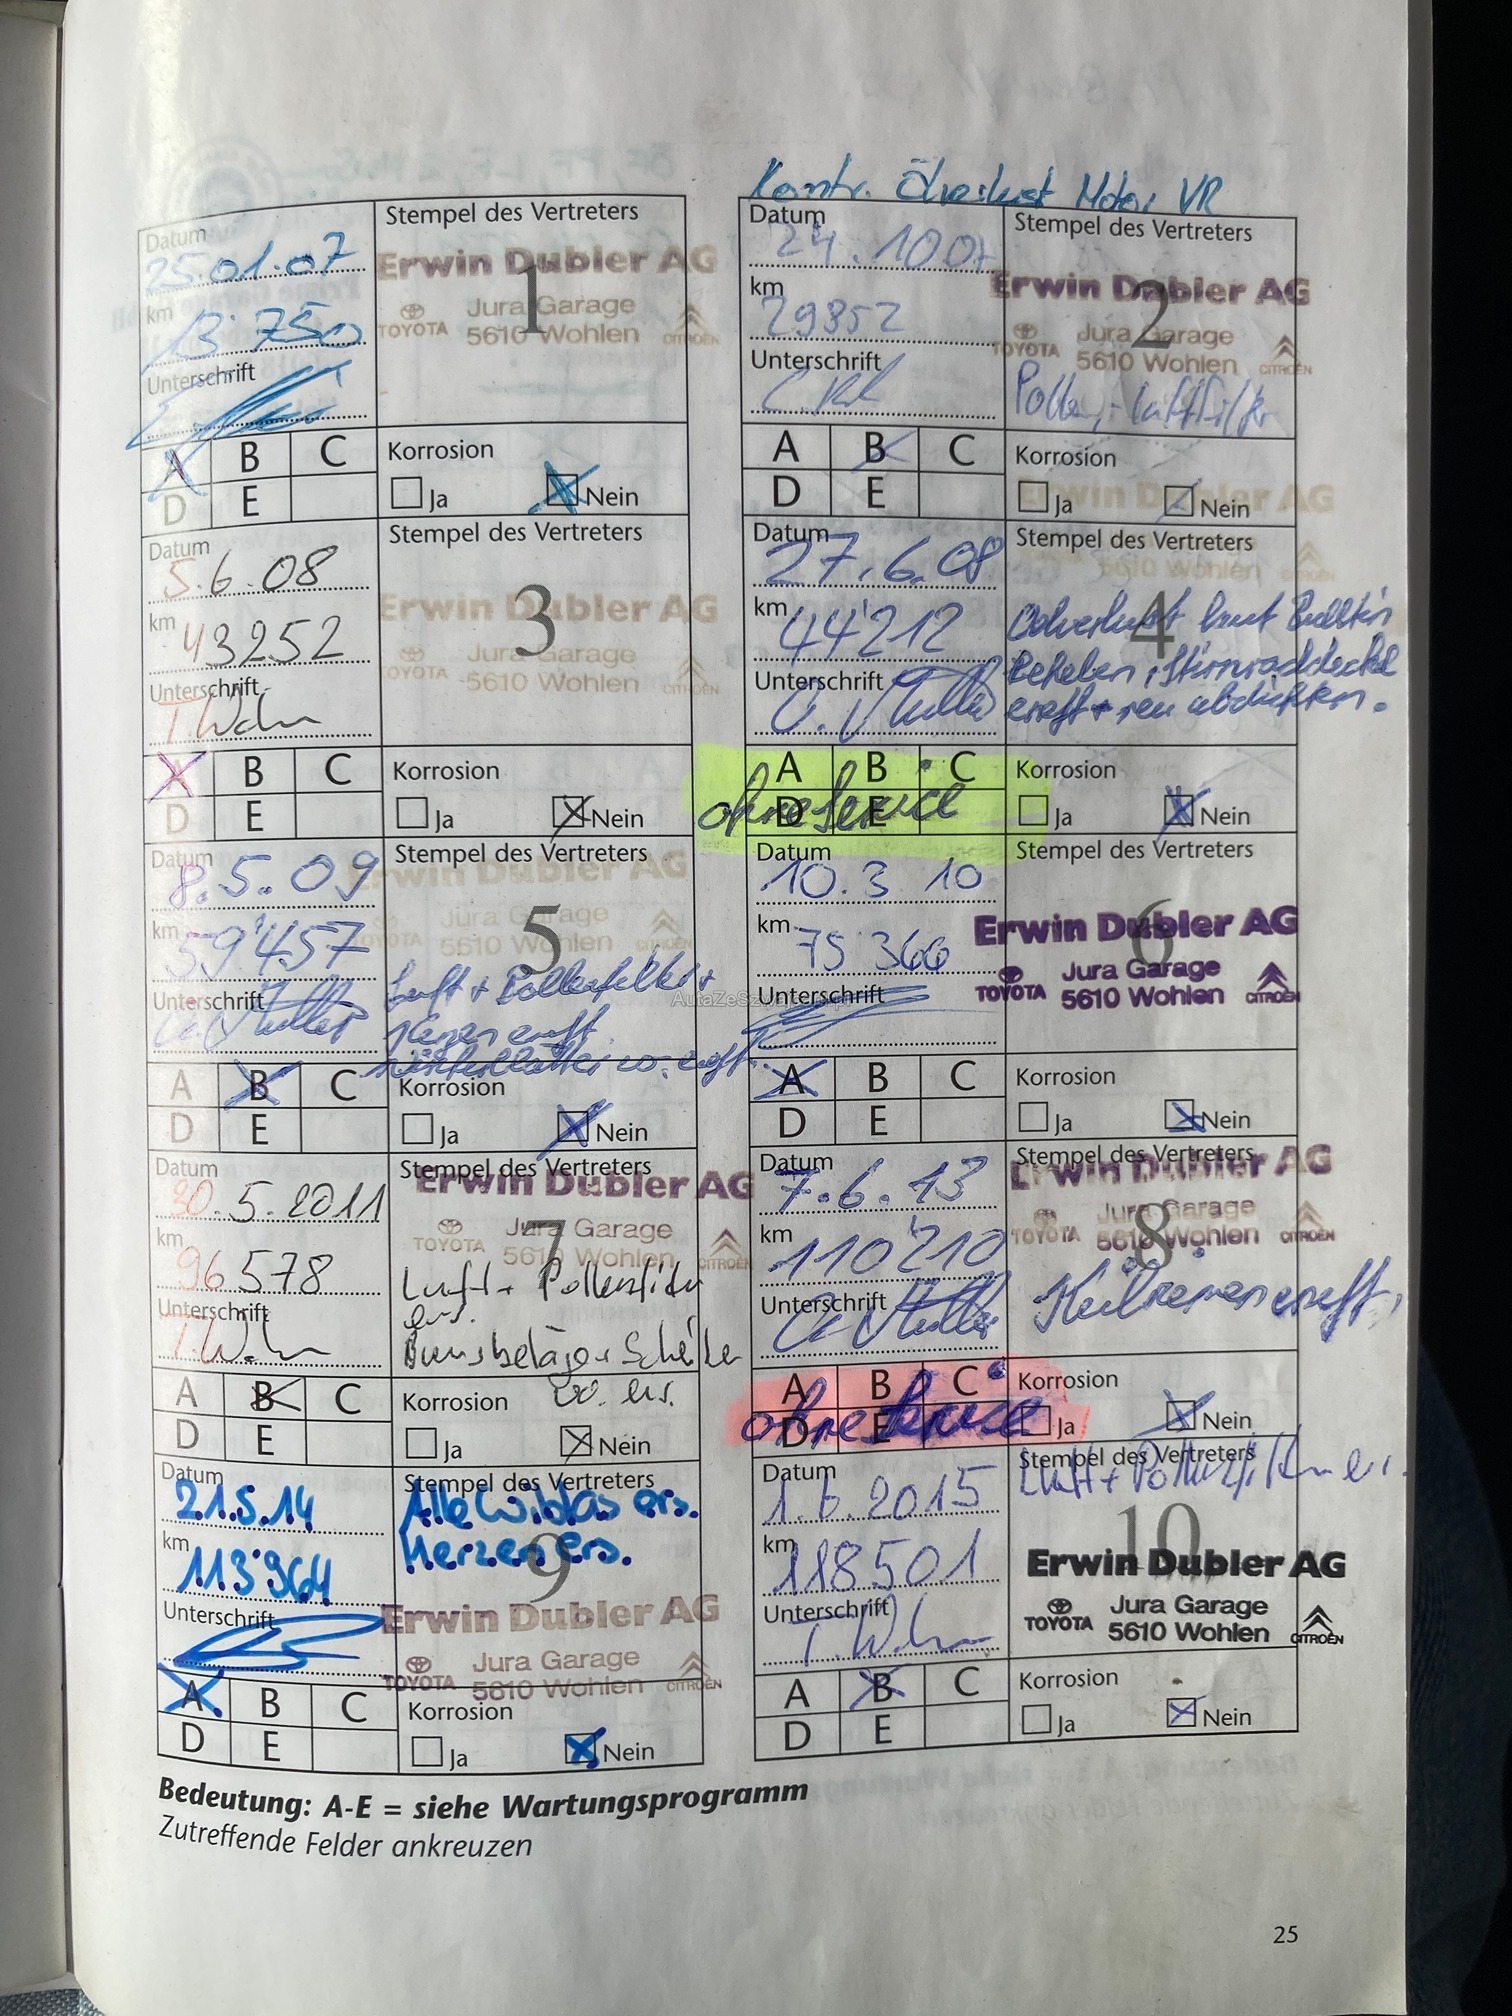 Kontr. Ölverlust Motor VR
Datum
25.01.07
km
13'750
Unterschrift
Stempel des Vertreters
1
Erwin Dubler AG
TOYOTA
Jura Garage
5610 Wohlen
CITROËN
A B C
D E
Korrosion
Ja Nein
Datum
24.10.07
km
29852
Unterschrift
Stempel des Vertreters
2
Erwin Dubler AG
TOYOTA
Jura Garage
5610 Wohlen
CITROËN
Pollen + Luftfilter
A B C
D E
Korrosion
Ja Nein
Erwin Dubler AG
Datum
5.6.08
km
43252
Unterschrift
Stempel des Vertreters
3
Erwin Dubler AG
TOYOTA
Jura Garage
5610 Wohlen
CITROËN
A B C
D E
Korrosion
Ja Nein
Datum
27.6.08
km
44'212
Unterschrift
Stempel des Vertreters
4
Oelverlust laut Bulletin
beheben, Stirnraddeckel
ers + neu abdichten.
A B C
D E
ohne Service
Korrosion
Ja Nein
Datum
8.5.09
km
59'457
Unterschrift
Stempel des Vertreters
5
Erwin Dubler AG
TOYOTA
Jura Garage
5610 Wohlen
CITROËN
Luft + Pollenfilter +
A B C
D E
Korrosion
Ja Nein
Datum
10.3 10
km
75 366
Unterschrift
Stempel des Vertreters
6
Erwin Dubler AG
TOYOTA
Jura Garage
5610 Wohlen
CITROËN
AutaZeSzwajcarii.pl
A B C
D E
Korrosion
Ja Nein
Datum
30.5.2011
km
96578
Unterschrift
Stempel des Vertreters
7
Erwin Dubler AG
TOYOTA
Jura Garage
5610 Wohlen
CITROËN
Luft + Pollenfilter
ers.
Bremsbeläge + Scheiben
vo. ers.
A B C
D E
Korrosion
Ja Nein
Datum
7.6.13
km
110'210
Unterschrift
Stempel des Vertreters
8
Erwin Dubler AG
TOYOTA
Jura Garage
5610 Wohlen
CITROËN
Keilriemen
A B C
D E
ohne Service
Korrosion
Ja Nein
Datum
21.5.14
km
113'964
Unterschrift
Stempel des Vertreters
9
Alle Wiblas ers.
Kerzen ers.
Erwin Dubler AG
TOYOTA
Jura Garage
5610 Wohlen
CITROËN
A B C
D E
Korrosion
Ja Nein
Datum
1.6.2015
km
118501
Unterschrift
Stempel des Vertreters
Luft + Pollenfilter
10
Erwin Dubler AG
TOYOTA
Jura Garage
5610 Wohlen
CITROËN
A B C
D E
Korrosion
Ja Nein
Bedeutung: A-E = siehe Wartungsprogramm
Zutreffende Felder ankreuzen
25